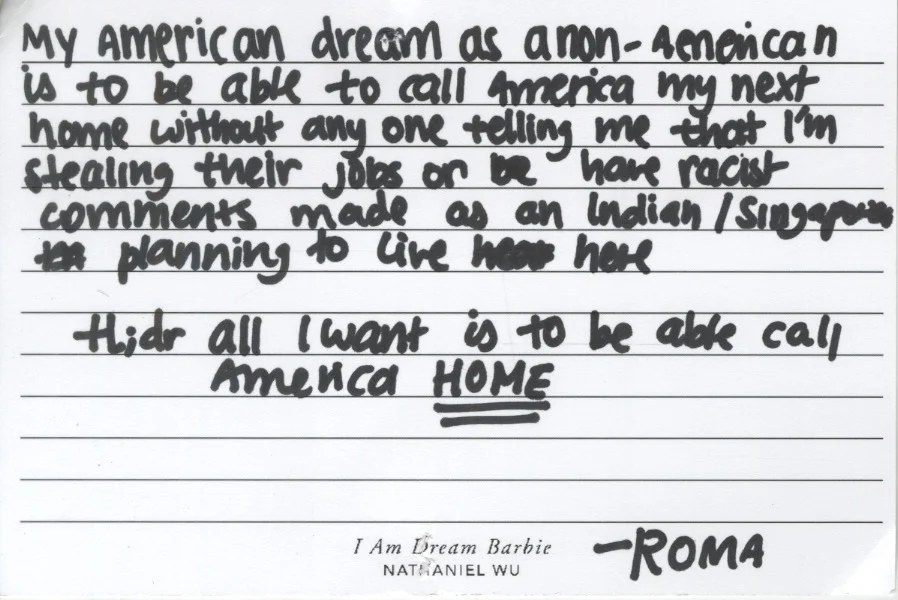 My American dream as a non-American
is to be able to call America my next
home without any one telling me that I'm
stealing their jobs or be have racist
comments made as an Indian / Singaporean
planning to live here
tl;dr all I want is to be able call
America HOME
I Am Dream Barbie
NATHANIEL WU
-ROMA